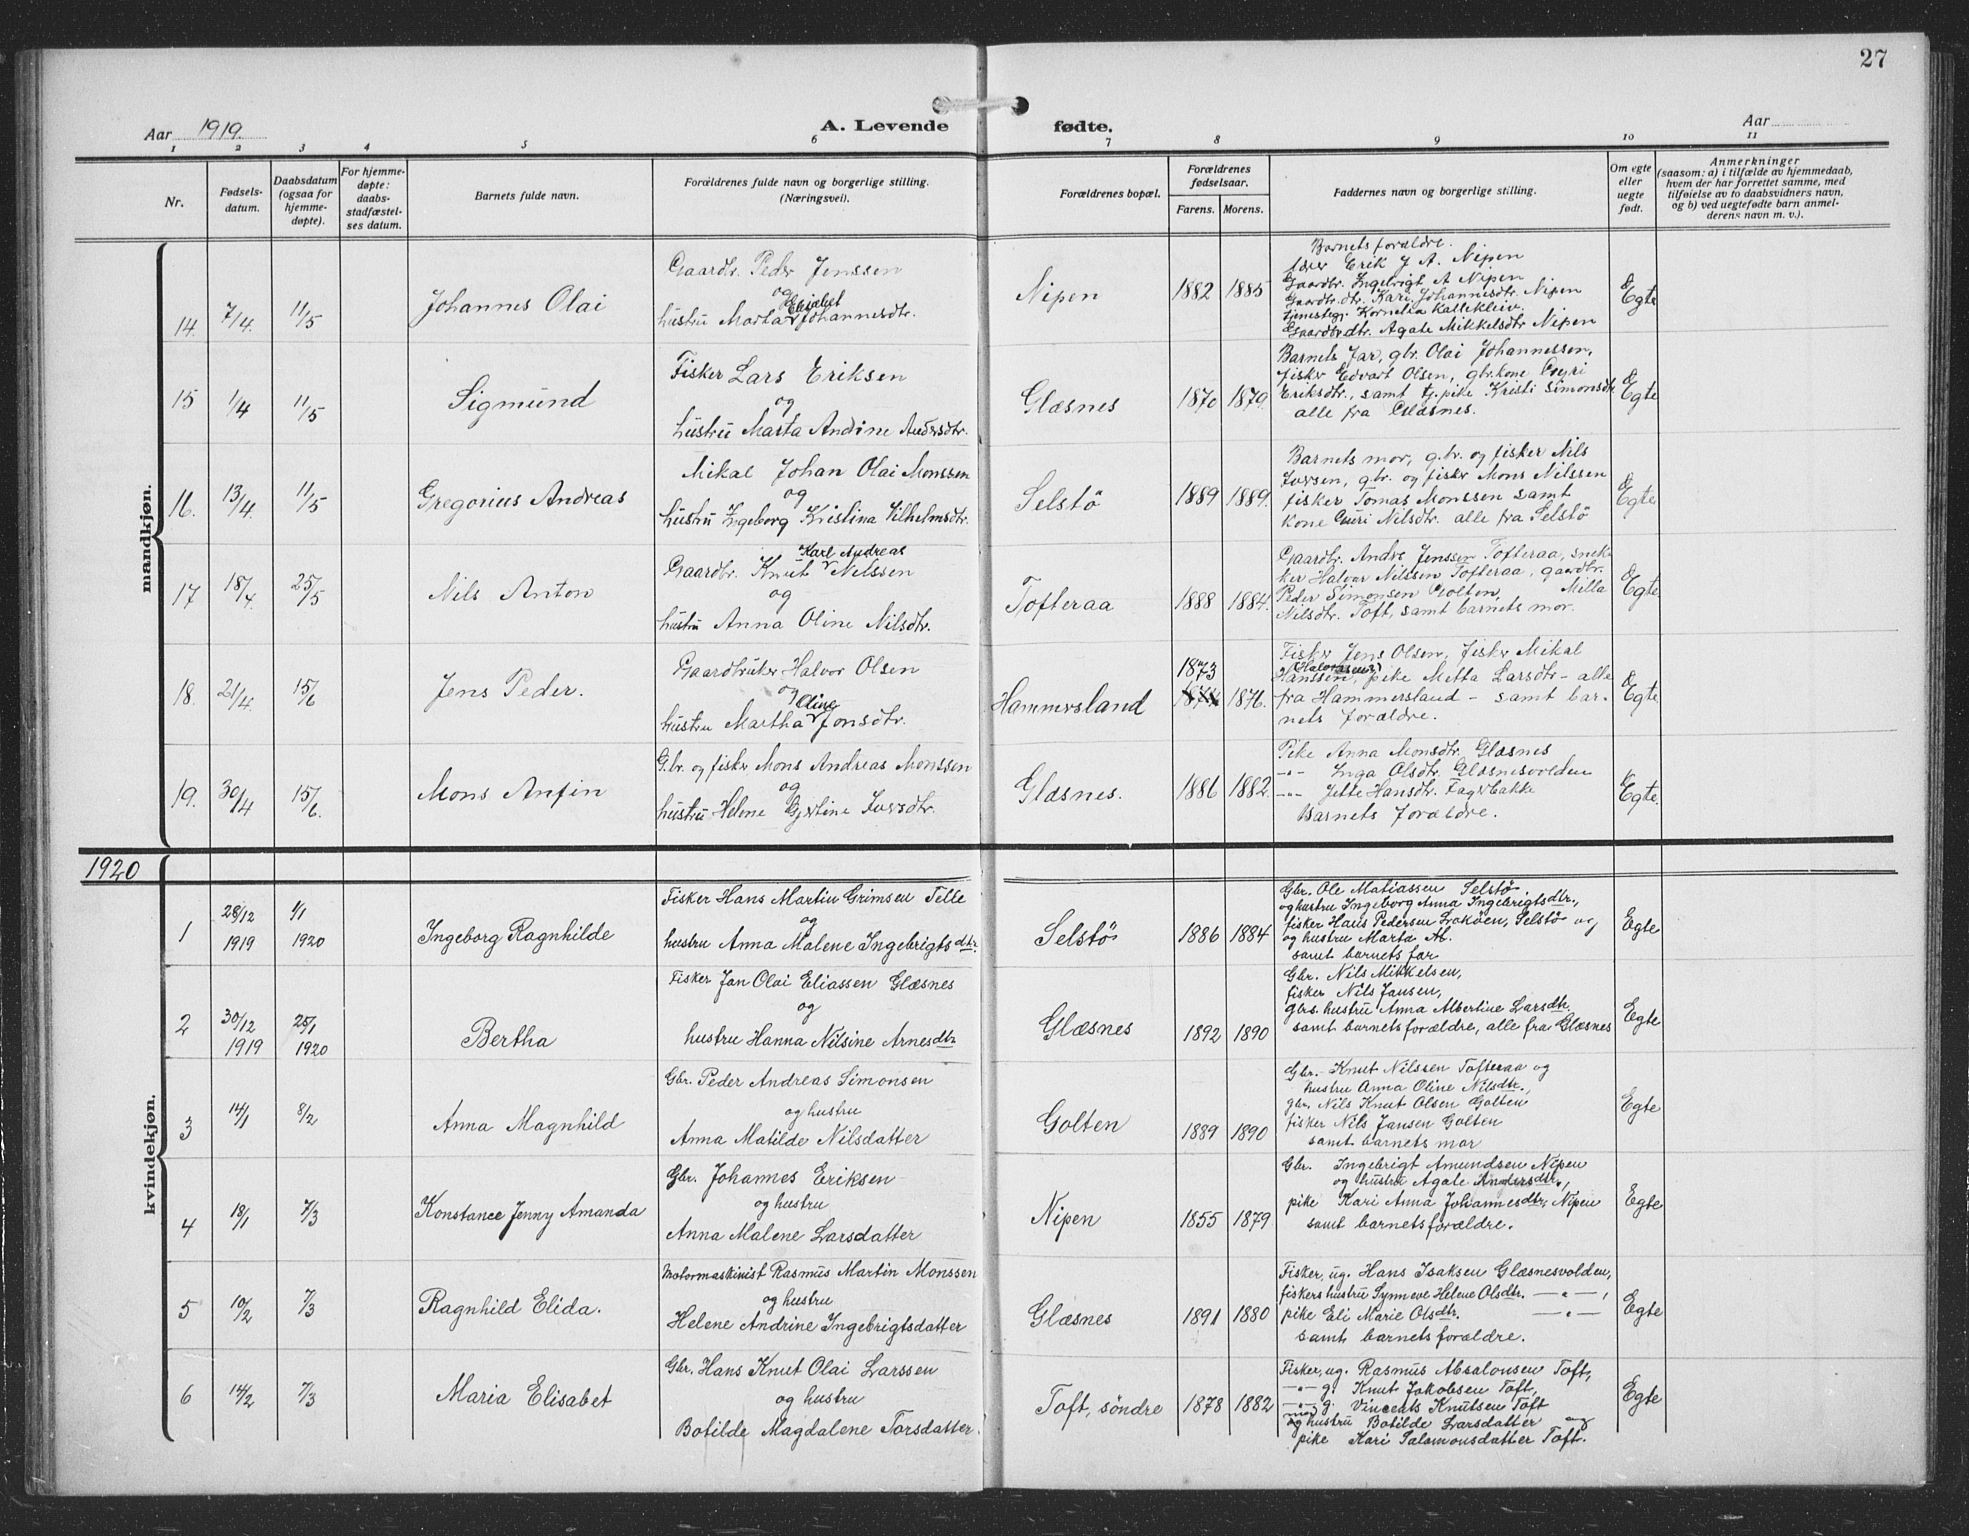 27
Aar 1919. A. Levende fødte. Aar
1 2 3 4 5 6 7 8 9 10 11
Nr.
Fødsels-
datum.
Daabsdatum
(ogsaa for
hjemme-
døpte).
For hjemme-
døpte:
daabs-
stadfæstel-
ses datum.
Barnets fulde navn.
Forældrenes fulde navn og borgerlige stilling.
(Næringsvei).
Forældrenes bopæl.
Forældrenes
fødselsaar.
Farens. Morens.
Faddernes navn og borgerlige stilling.
Om egte
eller
uegte
født.
Anmerkninger
(saasom: a) i tilfælde av hjemmedaab,
hvem der har forrettet samme, med
tilføielse av to daabsvidners navn,
og b) ved uegtefødte barn anmel-
derens navn m. v.).
mandkjøn.
14 7/4. 11/5 Johannes Olai
Gaardbr. Peder Jenssen
og
Elisabet
hustru Marta Johannesdtr.
Nipen 1882 1885
Barnets forældre.
Erik J. A. Nipen
Gaardbr. Ingebrigt A Nipen
Gaardbr.dtr. Kari Johannesdtr. Nipen
tjenestepi. Kornelia Kalleklein
Gaardbrdtr. Agate Mikkelsdtr Nipen
Egte
15 1/4 11/5 Sigmund
Fisker Lars Eriksen
og
hustru Marta Andine Andersdtr.
Glæsnes 1870 1879.
Barnets far, gbr. Olai Johannessen,
fisker Edvart Olsen, gbr.kone Gyri
Eriksdtr., samt tj.pike Kristi Simonsdtr
alle fra Glæsnes.
Egte
16. 13/4. 11/5 Gregorius Andreas
Mikal Johan Olai Monssen
og
hustru Ingeborg Kristina Vilhelmsdtr.
Selstö 1889 1889.
Barnets mor, g.br. og fisker Nils
Iversen, gbr. og fisker Mons Nilssen
fisker Tomas Monssen samt
kone Guri Nilsdtr. alle fra Selstö
Egte
17 18/4. 25/5 Nils Anton
Karl Andreas
Gaardbr. Knut Nilssen
og
hustru Anna Oline Nilsdtr.
Tofteraa 1888 1884.
Gaardbr. Andrs Jenssen Tofteraa, snek-
ker Halvor Nilssen Tofteraa, gaardbr.
Peder Simonsen Golten, Milla
Nilsdtr. Toft, samt barnets mor.
Egte
18. 21/4. 15/6 Jens Peder.
Gaardbruker Halvor Olsen
og
Oline
hustru Martha Jonsdtr.
Hammersland 1873 1874 1876.
Fisker Jens Olsen, fisker Mikal
Halvorsen)
Hanssen, pike Metta Larsdtr - alle
fra Hammersland - samt bar-
nets forældre.
Egte
19. 30/4 15/6. Mons Anfin
G.br. og fisker Mons Andreas Monssen
og
hustru Helene Gjertine Iversdtr.
Glæsnes. 1886 1882.
Pike Anna Monsdtr. Glæsnes
-"- Inga Olsdtr. Glæsnesvolden
-"- Jette Hansdtr. Fagerbakke
Barnets forældre.
Egte.
1920
kvindekjøn.
1 28/12 1919 1/1 1920 Ingeborg Ragnhilde
Fisker Hans Martin Grimsen Telle
og
hustru Anna Malene Ingebrigtsdtr.
Selstö 1886 1884
Gbr. Ole Matiassen Selstö
og hustru Ingeborg Anna Ingebrigtsdtr.,
fisker Hans Pedersen Lokøen, Selstö og
og hustru Marta M.
samt barnets far
Egte
2 30/12 1919 25/1 1920 Bertha
Fisker Jan Olai Eliassen Glæsnes
og
hustru Hanna Nilsine Arnesdtr
Glæsnes 1892 1890
Gbr. Nils Mikkelsen,
fisker Nils Jansen,
gbrs. hustru Anna Albertine Larsdtr.
samt barnets forældre, alle fra Glæsnes
Egte
3 14/1 8/2 Anna Magnhild
Gbr. Peder Andreas Simonsen
og hustru
Anna Matilde Nilsdatter
Golten 1889 1890
Gbr. Knut Nilssen Tofteraa og
hustru Anna Oline Nilsdtr.,
gbr. Nils Knut Olsen Golten
fisker Nils Jansen Golten
samt barnets mor
Egte
4 18/1 7/3 Konstance Jenny Amanda
Gbr. Johannes Eriksen
og hustru
Anna Malene Larsdatter
Nipen 1855 1879
Gbr. Ingebrigt Amundsen Nipen
og hustru Agate Andersdtr.,
pike Kari Anna Johannesdtr. Nipen
samt barnets forældre.
Egte
5 10/2 7/3 Ragnhild Elida.
Motormaskinist Rasmus Martin Monssen
og hustru
Helene Andrine Ingebrigtsdatter
Glæsnes 1891 1880
Fisker, ug. Hans Isaksen Glæsnesvolden,
fiskers hustru Synneve Helene Olsdtr. -"-,
pike Eli Marie Olsdtr. -"-
samt barnets forældre.
Egte
6 14/2 7/3 Maria Elisabet
Gbr. Hans Knut Olai Larssen
og hustru
Botilde Magdalene Torsdatter.
Toft, söndre 1878 1882
Fisker, ug. Rasmus Absalonsen Toft,
-"- g. Knut Jakobsen Toft,
-"- g. Vincents Knutsen Toft
med
og hustru Botilde Larsdatter og
pike Kari Salamonsdatter Toft.
Egte